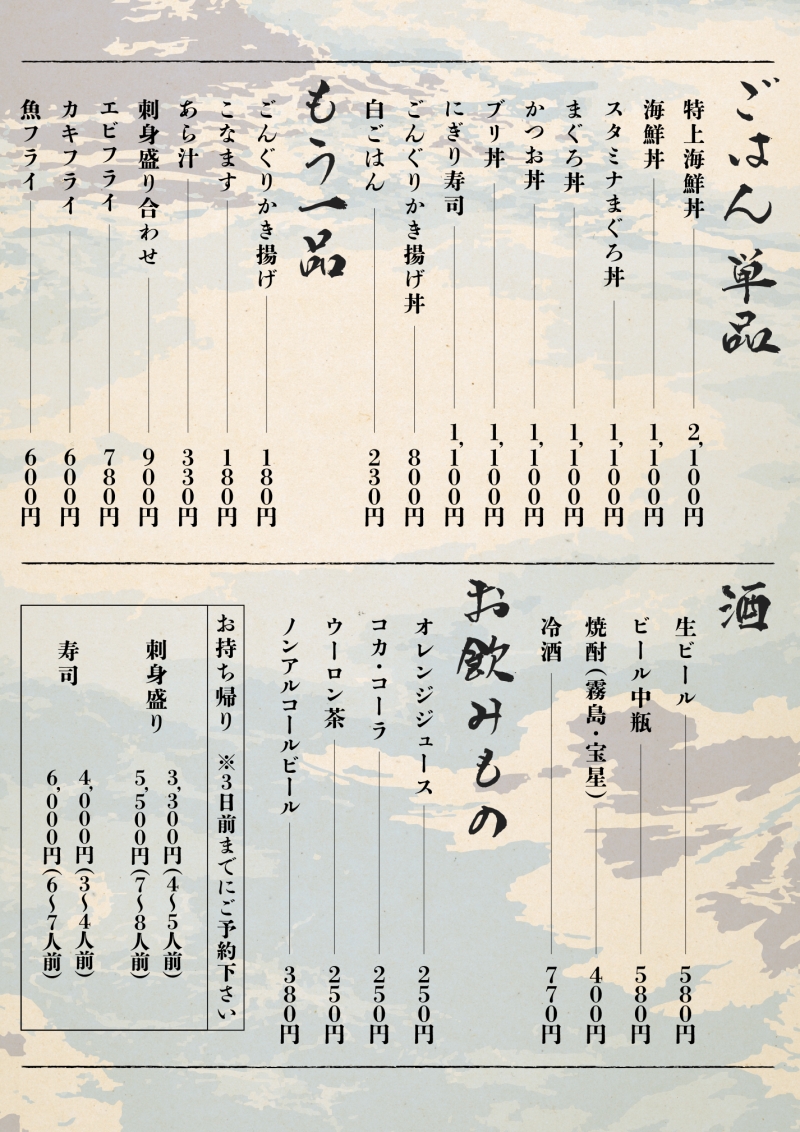 ごはん 単品
特上海鮮丼 2,100円
海鮮丼 1,100円
スタミナまぐろ丼 1,100円
まぐろ丼 1,100円
かつお丼 1,100円
ブリ丼 1,100円
にぎり寿司 1,100円
ごんぐりかき揚げ丼 800円
白ごはん 230円
もう一品
ごんぐりかき揚げ 180円
こなます 180円
あら汁 330円
刺身盛り合わせ 900円
エビフライ 780円
カキフライ 600円
魚フライ 600円
酒
生ビール 580円
ビール中瓶 580円
焼酎(霧島・宝星) 400円
冷酒 770円
お飲みもの
オレンジジュース 250円
コカ・コーラ 250円
ウーロン茶 250円
ノンアルコールビール 380円
お持ち帰り ※3日前までにご予約下さい
刺身盛り 3,300円(4〜5人前)
5,500円(7〜8人前)
寿司 4,000円(3〜4人前)
6,000円(6〜7人前)